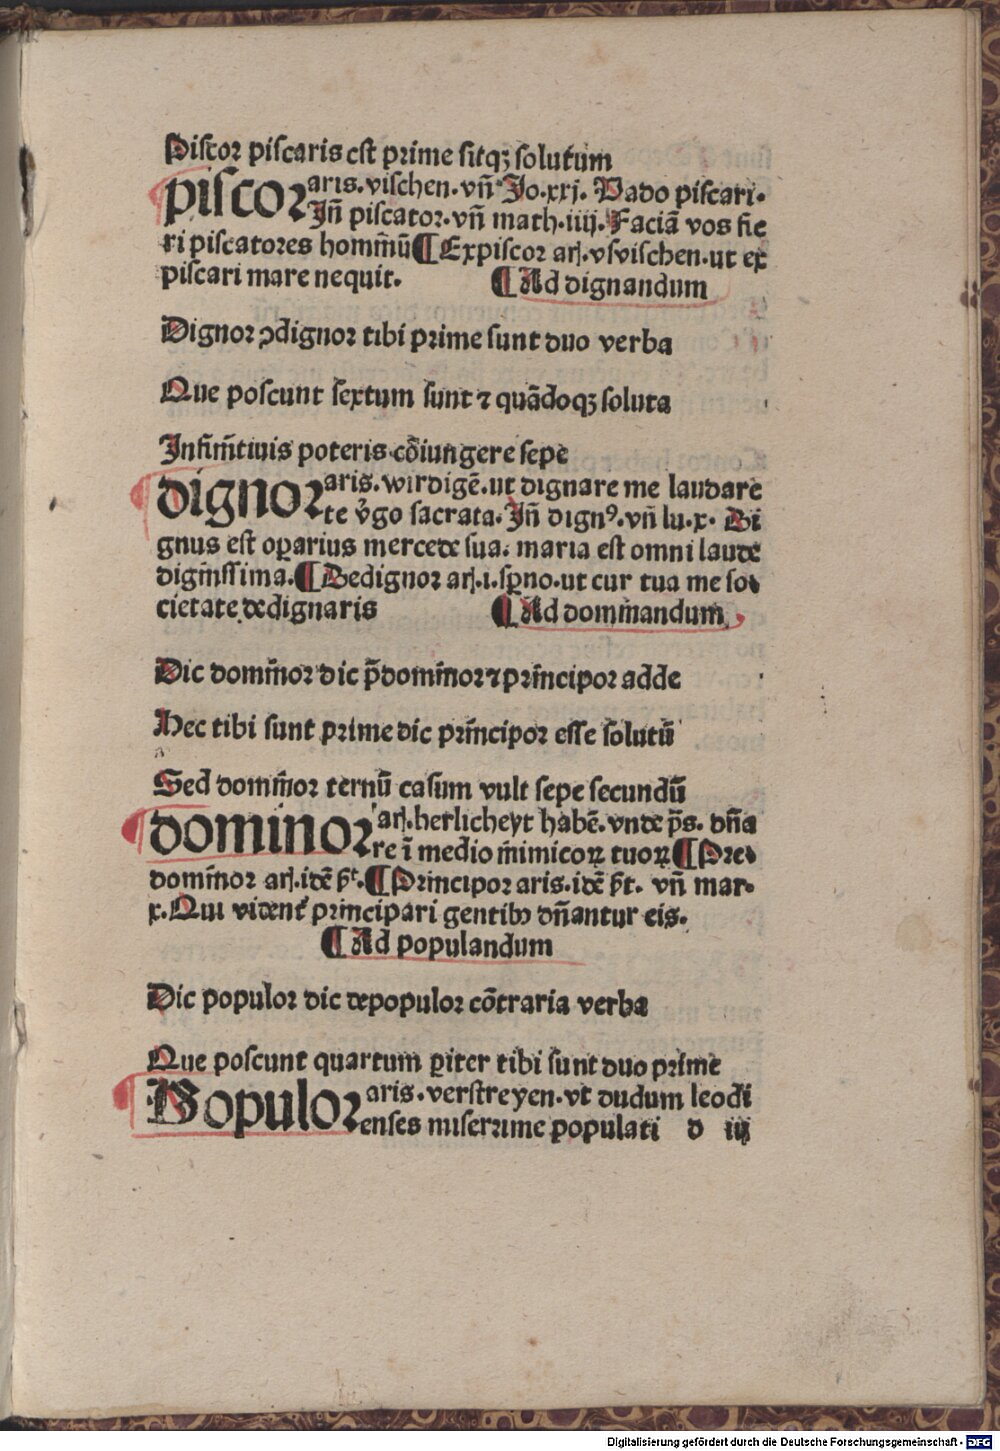 Piscor piscaris est prime sitqꝫ solutum
piscor aris. vischen. vn̄ Jo. xxj. Vado piscari.
Jn̄ piscator. vn̄ math. iiij. Faciā vos fie
ri piscatores homīnū ¶ Expiscor arꝭ. vsvischen. ut ex
piscari mare nequit. ¶ Ad dignandum
Dignor ꝯdignor tibi prime sunt duo verba
Que poscunt sextum sunt ⁊ quādoqꝫ soluta
Infinītiuis poteris cōiungere sepe
dignor aris. wirdigē. ut dignare me laudare
te v̓go sacrata. Jn̄ dignꝰ. vn̄ lu. x. Di
gnus est oꝑarius mercede sua. maria est omni laude
dignīssima. ¶ Dedignor arꝭ. i. sꝑno. ut cur tua me so
cietate dedignaris ¶ Ad domīnandum
Dic domīnor dic p̄domīnor ⁊ prīncipor adde
Hec tibi sunt prime dic prīncipor esse solutū
Sed domīnor ternū casum vult sepe secundū
dominor arꝭ. herlicheyt habē. vnde p̄s. dn̄a
re ī medio īnimicoꝝ tuoꝝ ¶ Pre
domīnor arꝭ. idē p̄t. ¶ Prīncipor aris. idē p̄t. vn̄ mar
x. Qui vident᷑ prīncipari gentibꝫ dn̄antur eis.
¶ Ad populandum
Dic populor dic depopulor cōtraria verba
Que poscunt quartum ꝑiter tibi sunt duo prime
Populor aris. verstreyen. vt dudum leodi
enses miserrime populati d iij
Digitalisierung gefördert durch die Deutsche Forschungsgemeinschaft - DFG